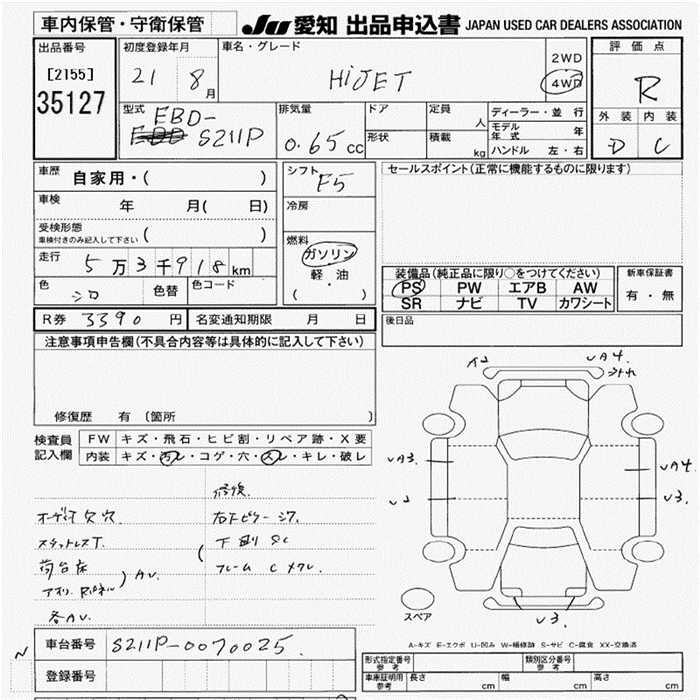 車内保管・守衛保管
JU 愛知 出品申込書 JAPAN USED CAR DEALERS ASSOCIATION
出品番号
[2155]
35127
初度登録年月
21 8月
車名・グレード
HiJET
2WD
4WD
評価点
R
外装 内装
D C
型式
EBD-
S211P
排気量
0.65cc
ドア
形状
定員 人
積載 kg
ディーラー・並行
モデル年式 年
ハンドル 左・右
車歴 自家用・( )
車検 年 月( 日)
受検形態
車検付きのみ記入して下さい ( )
走行 5万3千918km
色 シロ 色替 色コード
シフト F5
冷房
燃料
ガソリン
軽・油
( )
セールスポイント(正常に機能するものに限ります)
装備品(純正品に限り○をつけてください)
PS PW エアB AW
SR ナビ TV カワシート
新車保証書
有・無
R券 3390円 名変通知期限 月 日
後日品
注意事項申告欄(不具合内容等は具体的に記入して下さい)
修復歴 有 〔箇所
検査員
記入欄
FW キズ・飛石・ヒビ割・リペア跡・X要
内装 キズ・汚レ・コゲ・穴・スレ・キレ・破レ
修復
オーディオ欠 穴
右Fピラー シワ
スタットレスT.
下廻 SC
荷台床
フレーム C メクレ.
アオリ. Rパネル) AU.
各AU.
A2
UA4.
UA3.
U2
UA4.
U3.
U3.
スペア
A-キズ E-エクボ U-凹み W-補修跡 S-サビ C-腐食 XX-交換済
車台番号 S211P-0070025.
N
登録番号
形式指定番号
参考
類別区分番号
参考
車庫証明用
参考
長さ cm 幅 cm 高さ cm